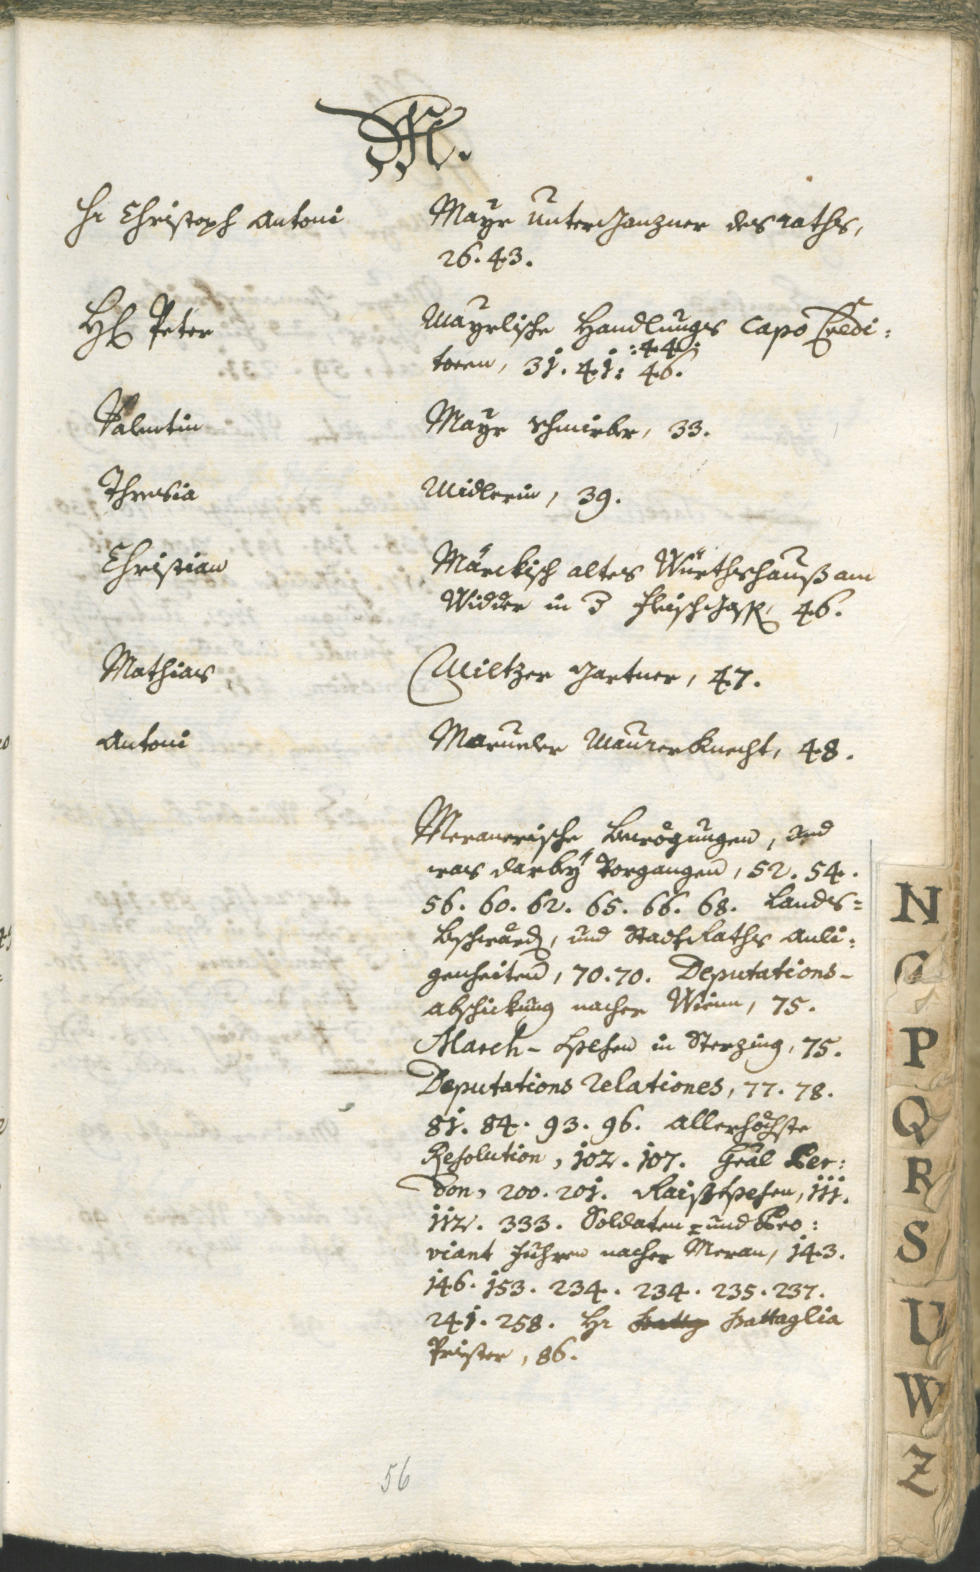 M.
Hr Christoph Antoni Mayr Unterganzner des raths,
26. 43.
Hl Peter Mayrlische Handlungs Capo Credi:
:44:
toren, 31. 41: 46.
Valentin Mayr Schmirber, 33.
Thresia Midlerin, 39.
Christian Märckisch altes Würthshauß am
Widder in d fleischgaß, 46.
Mathias Miltzer gartner, 47.
Antoni Maurer Knecht, 48.
Meranerische Bewögungen, und
was darbey Vorgangen, 52. 54.
56. 60. 62. 65. 66. 68. Landts=
bschwärd, und Stadt Raths anli:
genheiten, 70. 70. Deputations-
abschickung nacher Wienn, 75.
March- Spesen in Sterzing, 75.
Deputations relationes, 77. 78.
81. 84. 93. 96. allerhöchste
Resolution, 102. 107. Gräl Per:
don, 200. 201. Raißspesen, 111.
112. 333. Soldaten- und Pro:
viant fuhren nacher Meran, 143.
146. 153. 234. 234. 235. 237.
241. 258. Hr battaglia
Priester, 86.
56
N
O
P
Q
R
S
U
W
Z